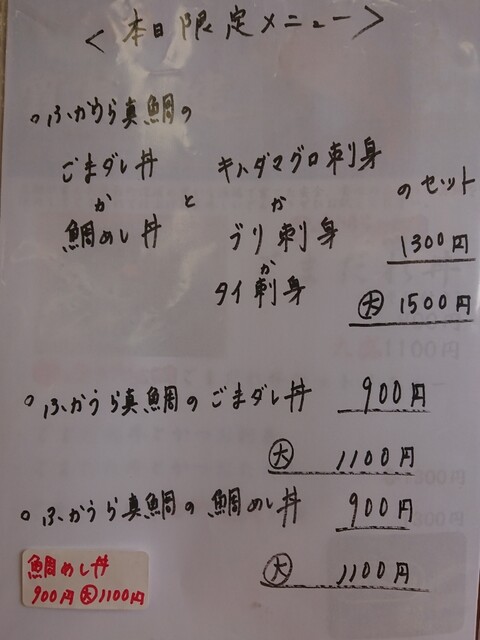 ＜本日限定メニュー＞
○ふかうら真鯛の
ごまダレ丼
か
鯛めし丼
と
キハダマグロ刺身
か
ブリ刺身
か
タイ刺身
のセット
1300円
大 1500円
○ふかうら真鯛のごまダレ丼 900円
大 1100円
○ふかうら真鯛の鯛めし丼 900円
大 1100円
鯛めし丼
900円大1100円